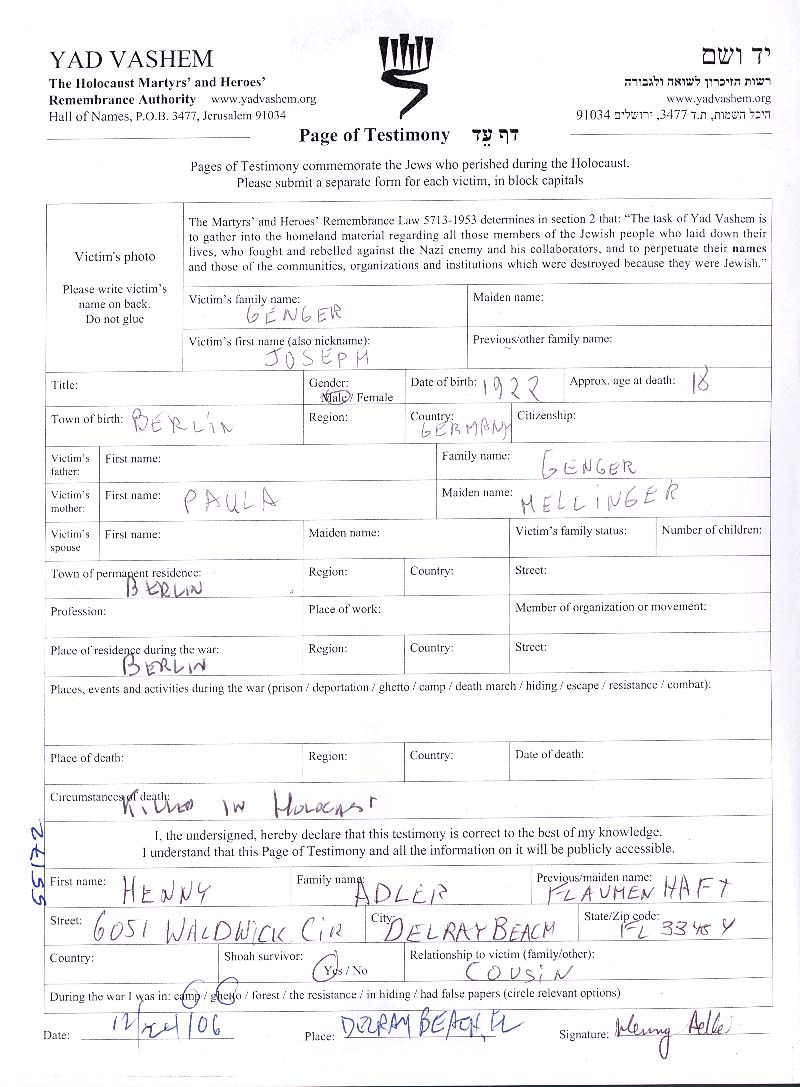 YAD VASHEM
The Holocaust Martyrs' and Heroes'
Remembrance Authority www.yadvashem.org
Hall of Names, P.O.B. 3477, Jerusalem 91034
יד ושם
רשות הזיכרון לשואה ולגבורה
www.yadvashem.org
היכל השמות, ת.ד. 3477, ירושלים 91034
Page of Testimony דף עֵד
Pages of Testimony commemorate the Jews who perished during the Holocaust.
Please submit a separate form for each victim, in block capitals
Victim's photo
Please write victim's
name on back.
Do not glue
The Martyrs' and Heroes' Remembrance Law 5713-1953 determines in section 2 that: "The task of Yad Vashem is
to gather into the homeland material regarding all those members of the Jewish people who laid down their
lives, who fought and rebelled against the Nazi enemy and his collaborators, and to perpetuate their names
and those of the communities, organizations and institutions which were destroyed because they were Jewish."
Victim's family name: GENGER
Maiden name:
Victim's first name (also nickname): JOSEPH
Previous/other family name:
Title:
Gender: Male / Female
Date of birth: 1922
Approx. age at death: 18
Town of birth: BERLIN
Region:
Country: GERMANY
Citizenship:
Victim's father:
First name:
Family name: GENGER
Victim's mother:
First name: PAULA
Maiden name: MELLINGER
Victim's spouse
First name:
Maiden name:
Victim's family status:
Number of children:
Town of permanent residence: BERLIN
Region:
Country:
Street:
Profession:
Place of work:
Member of organization or movement:
Place of residence during the war: BERLIN
Region:
Country:
Street:
Places, events and activities during the war (prison / deportation / ghetto / camp / death march / hiding / escape / resistance / combat):
Place of death:
Region:
Country:
Date of death:
Circumstances of death: KILLED IN HOLOCAST
I, the undersigned, hereby declare that this testimony is correct to the best of my knowledge.
I understand that this Page of Testimony and all the information on it will be publicly accessible.
First name: HENNY
Family name: ADLER
Previous/maiden name: FLAUMENHAFT
Street: 6051 WALDWICK CIR
City: DELRAY BEACH
State/Zip code: FL
Country:
Shoah survivor: Yes / No
Relationship to victim (family/other): COUSIN
During the war I was in: camp / ghetto / forest / the resistance / in hiding / had false papers (circle relevant options)
Date: 12/24/06
Place: DELRAY BEACH, FL
Signature: Henny Adler